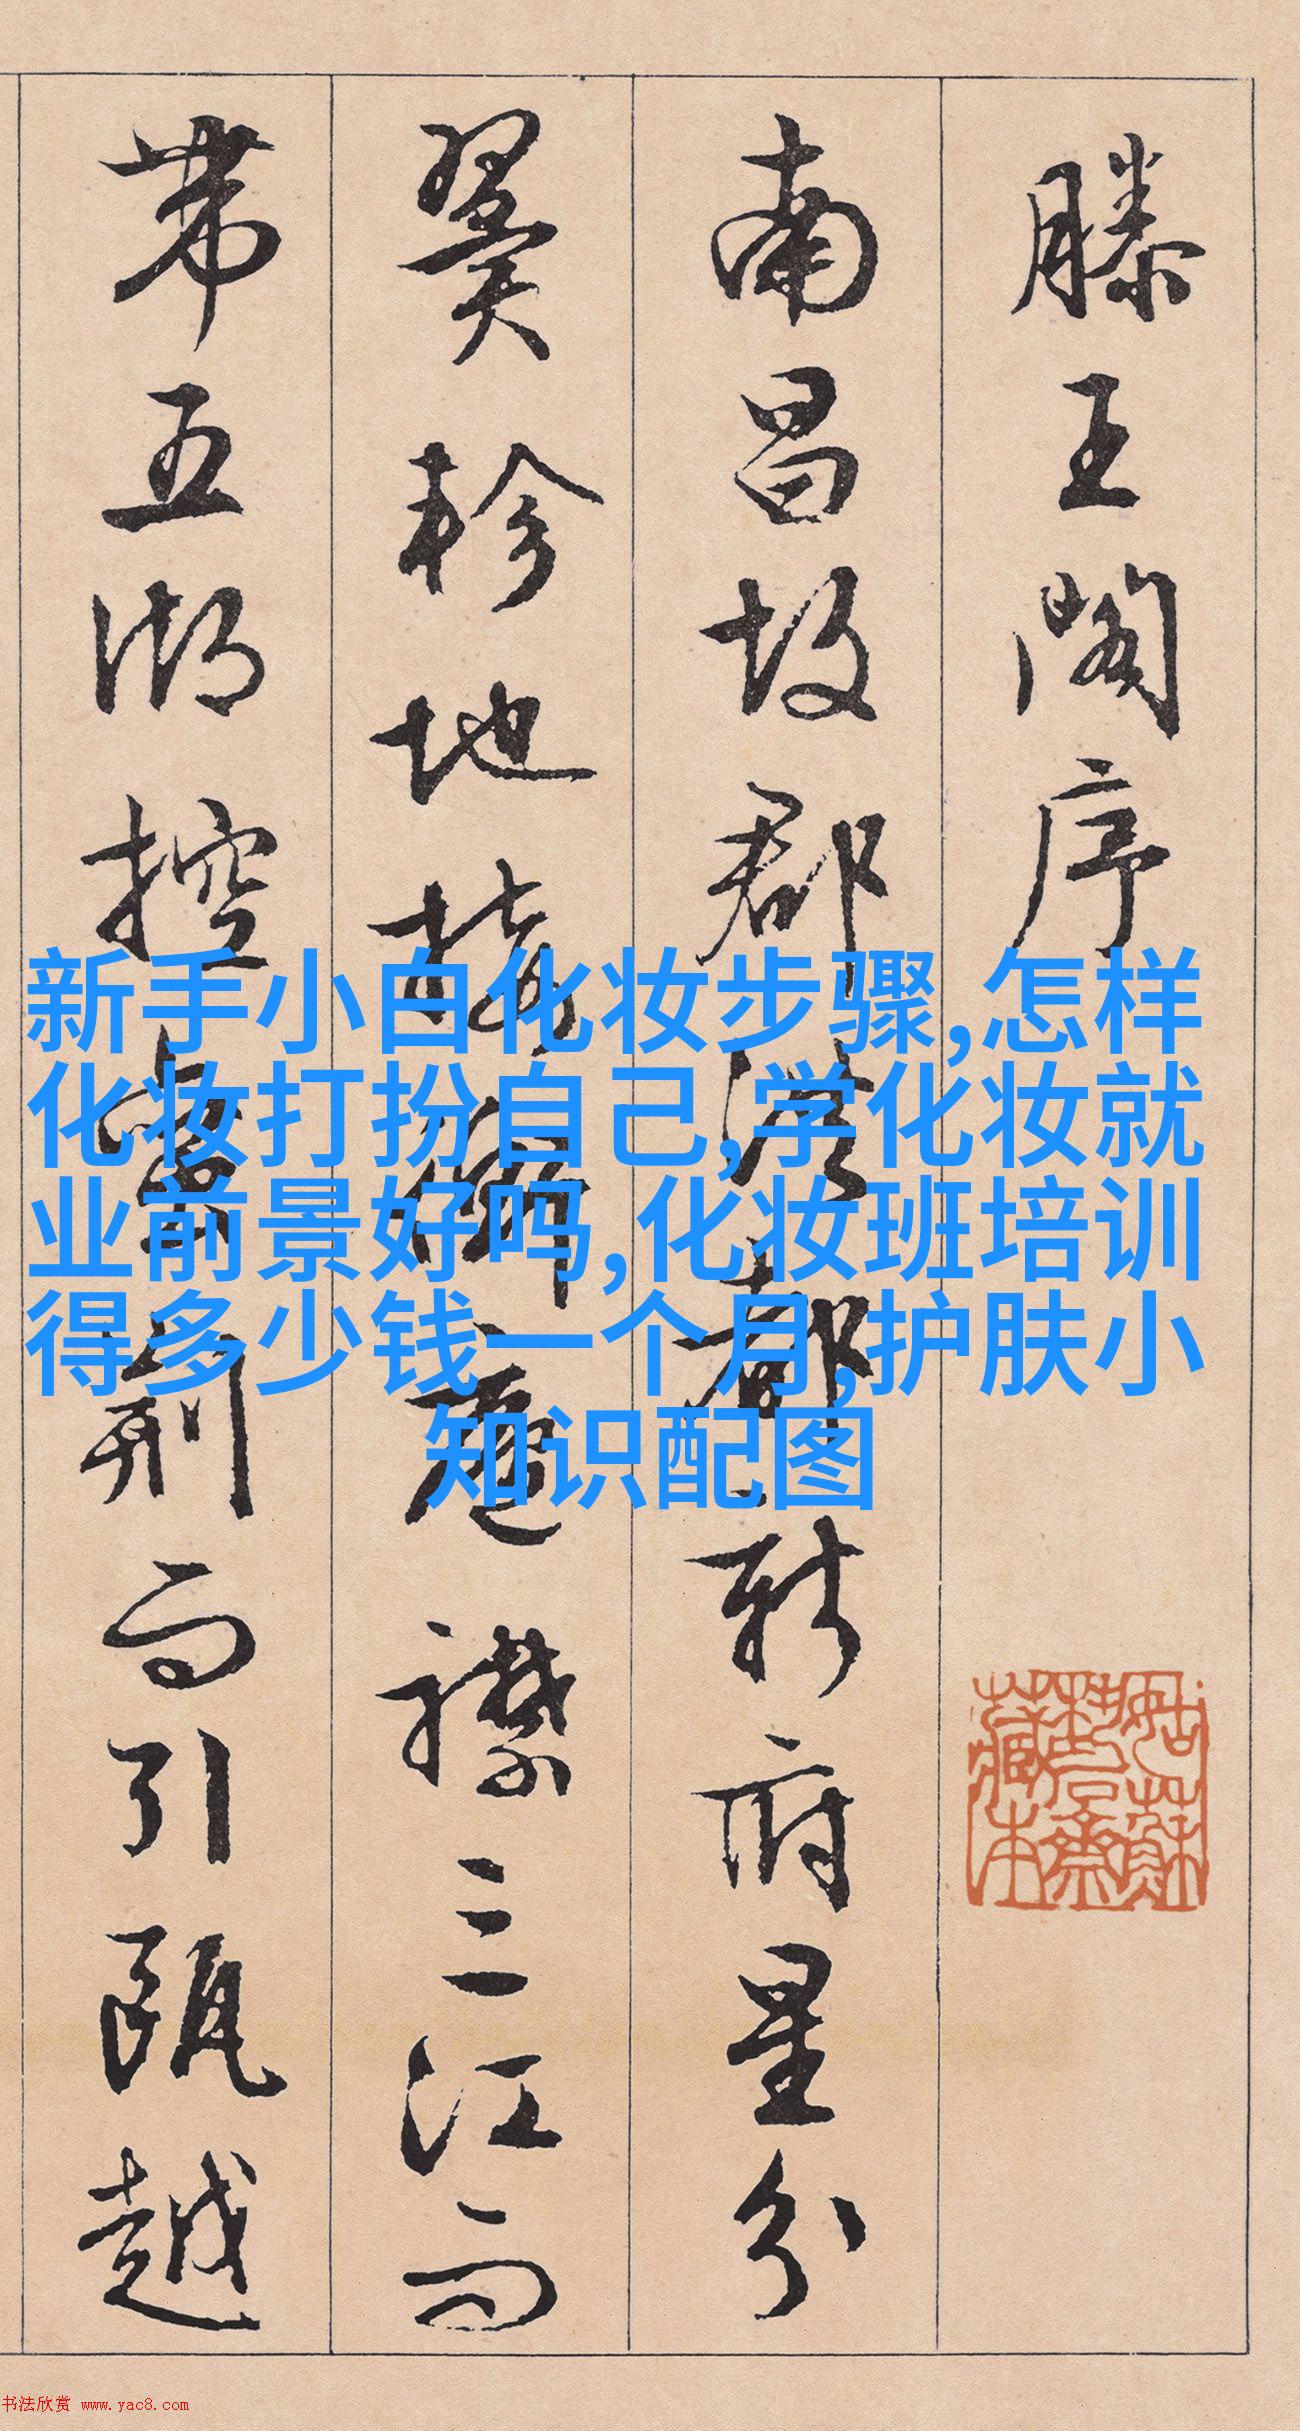 滕王閣序
南昌故郡洪都新府星分
翼軫地接衡廬襟三江而
帶五湖控蠻荊而引甌越
新手小白化妆步骤,怎样
化妆打扮自己,学化妆就
业前景好吗,化妆班培训
得多少钱一个月,护肤小
知识配图
姑蘇
藏本
书法欣赏 www.yac8.com